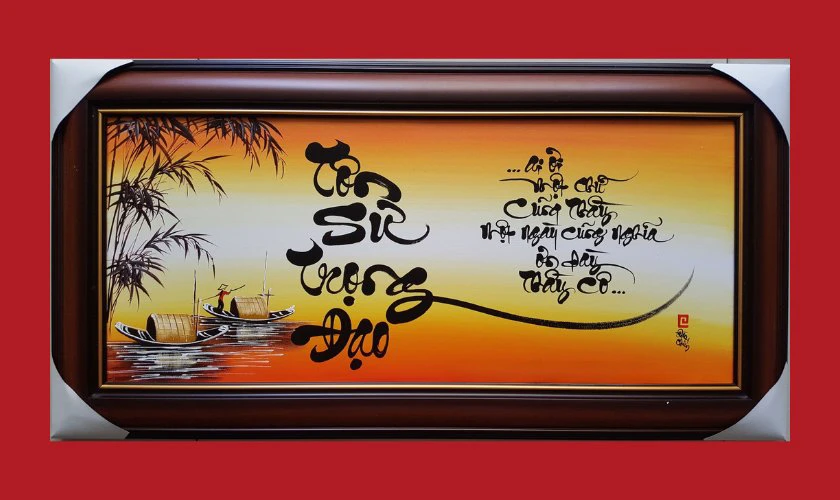 Tôn
Sư
Trọng
Đạo
...ai ơi
một chữ
cũng thầy
một ngày cũng nghĩa
ơn đầy
thầy cô...